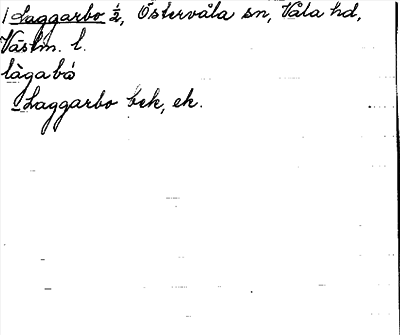 1 Laggarbo ½, Östervåla sn, Våla hd,
Västm. l.
làgabó
Laggarbo bek, ek.